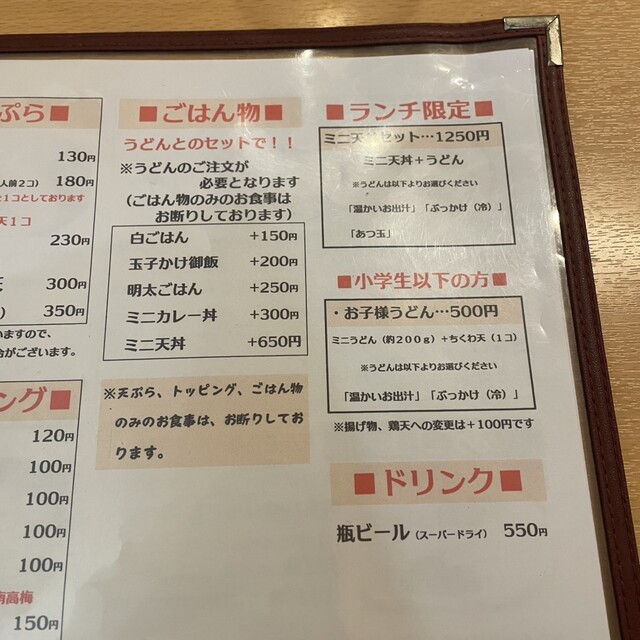 ぷら■
130円
人前2コ) 180円
1コとしております
天1コ
230円
天 300円
) 350円
いますので、
合がございます。
ング■
120円
100円
100円
100円
100円
南高梅
150円
■ごはん物■
うどんとのセットで！！
※うどんのご注文が
必要となります
(ごはん物のみのお食事は
お断りしております)
白ごはん +150円
玉子かけ御飯 +200円
明太ごはん +250円
ミニカレー丼 +300円
ミニ天丼 +650円
※天ぷら、トッピング、ごはん物
のみのお食事は、お断りしてお
ります。
■ランチ限定■
ミニ天丼セット…1250円
ミニ天丼＋うどん
※うどんは以下よりお選びください
「温かいお出汁」「ぶっかけ（冷）」
「あつ玉」
■小学生以下の方■
・お子様うどん…500円
ミニうどん（約200g）＋ちくわ天（1コ）
※うどんは以下よりお選びください
「温かいお出汁」「ぶっかけ（冷）」
※揚げ物、鶏天への変更は＋100円です
■ドリンク■
瓶ビール（スーパードライ） 550円